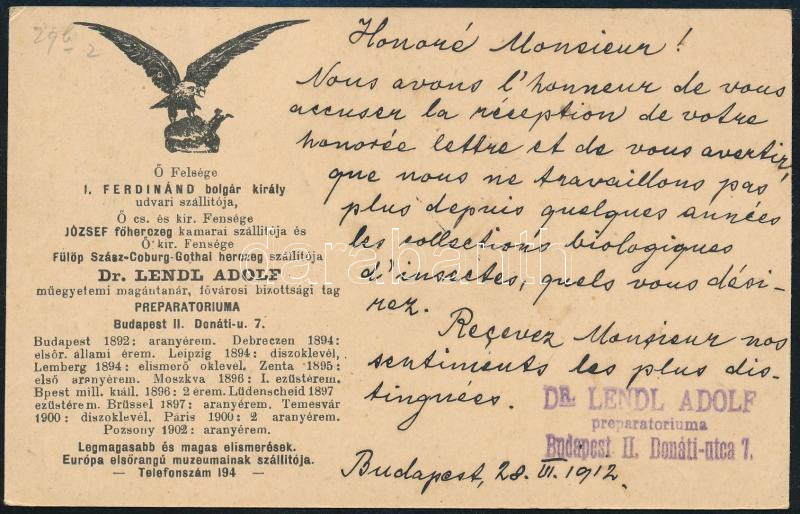 29b
2
Ő Felsége
I. FERDINÁND bolgár király
udvari szállitója,
Ő cs. és kir. Fensége
JÓZSEF főherczeg kamarai szállitója és
Ő kir. Fensége
Fülöp Szász-Coburg-Gothai herczeg szállitója
Dr. LENDL ADOLF
műegyetemi magántanár, fővárosi bizottsági tag
PREPARATORIUMA
Budapest II. Donáti-u. 7.
Budapest 1892: aranyérem. Debreczen 1894:
elsőr. állami érem. Leipzig 1894: diszoklevél,
Lemberg 1894: elismerő oklevel. Zenta 1895:
első aranyérem. Moszkva 1896: I. ezüstérem.
Bpest mill. kiáll. 1896: 2 érem. Lüdenscheid 1897
ezüstérem. Brüssel 1897: aranyérem. Temesvár
1900: diszoklevél. Páris 1900: 2 aranyérem.
Pozsony 1902: aranyérem.
Legmagasabb és magas elismerések.
Európa elsőrangú muzeumainak szállitója.
— Telefonszám 194 —
Honoré Monsieur!
Nous avons l'honneur de vous
accuser la réception de votre
honorée lettre et de vous avertir,
que nous ne travaillons pas
plus depuis quelques années
les collections biologiques
d'insectes, quels vous dési-
rez.
Reçevez Monsieur nos
sentiments les plus dis-
tinguées.
DR. LENDL ADOLF
preparatoriuma
Budapest II. Donáti-utca 7.
Budapest, 28. VI. 1912.
darabanth